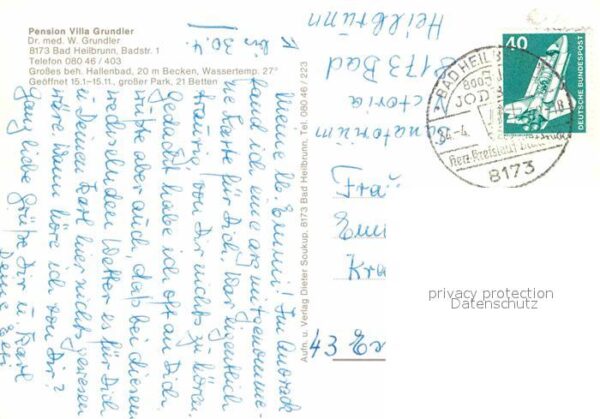 Pension Villa Grundler
Dr. med. W. Grundler
8173 Bad Heilbrunn, Badstr. 1
Telefon 080 46 / 403
Großes beh. Hallenbad, 20 m Becken, Wassertemp. 27°
Geöffnet 15.1.–15.11., großer Park, 21 Betten
bis
30.4.
Meine lb. Emmi! Im Anorack
fand ich eine arg mitgenomme-
ne Karte für Dich. War eigentlich
traurig von Dir nichts zu hören.
Gedacht habe ich oft an Dich,
hoffe aber auch, daß bei diesem
wechselnden Wetter es für Dich
u. Deinen Karl hier nichts gewesen
wäre. Wann höre ich von Dir?
Ganz liebe Grüße Dir u. Karl
Deine
Aufn. u. Verlag Dieter Soukup, 8173 Bad Heilbrunn, Tel. 080 46 / 223
Sanatorium
8173 Bad
Heilbrunn
Fra
Emi
Kra
43
BAD HEILB
JOD
8173
40
DEUTSCHE BUNDESPOST
privacy protection
Datenschutz